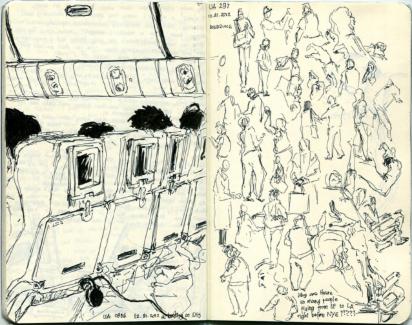 UA 297
12.31.2012
boarding
UA 0886 12.31.2012
Why are there
so many people
flying from SF to LA
right before NYE?????